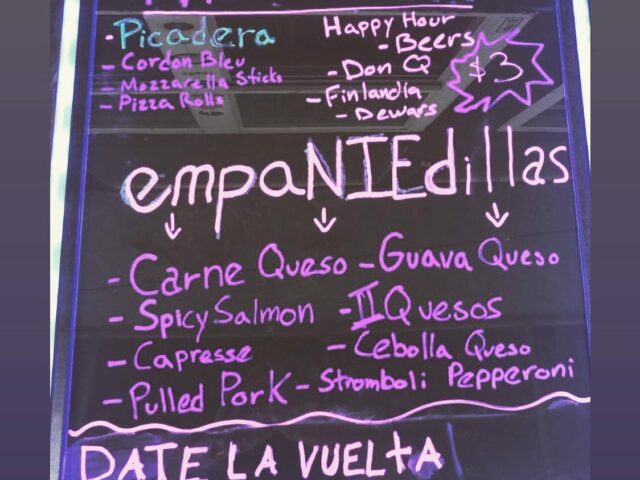 - Picadera
- Cordon Bleu
- Mozzarella Sticks
- Pizza Rolls
Happy Hour
- Beers
- Don Q
- Finlandia
- Dewars
$3
empaNIEdillas
- Carne Queso
- Spicy Salmon
- Capresse
- Pulled Pork
- Guava Queso
- II Quesos
- Cebolla Queso
- Stromboli Pepperoni
DATE LA VUELTA